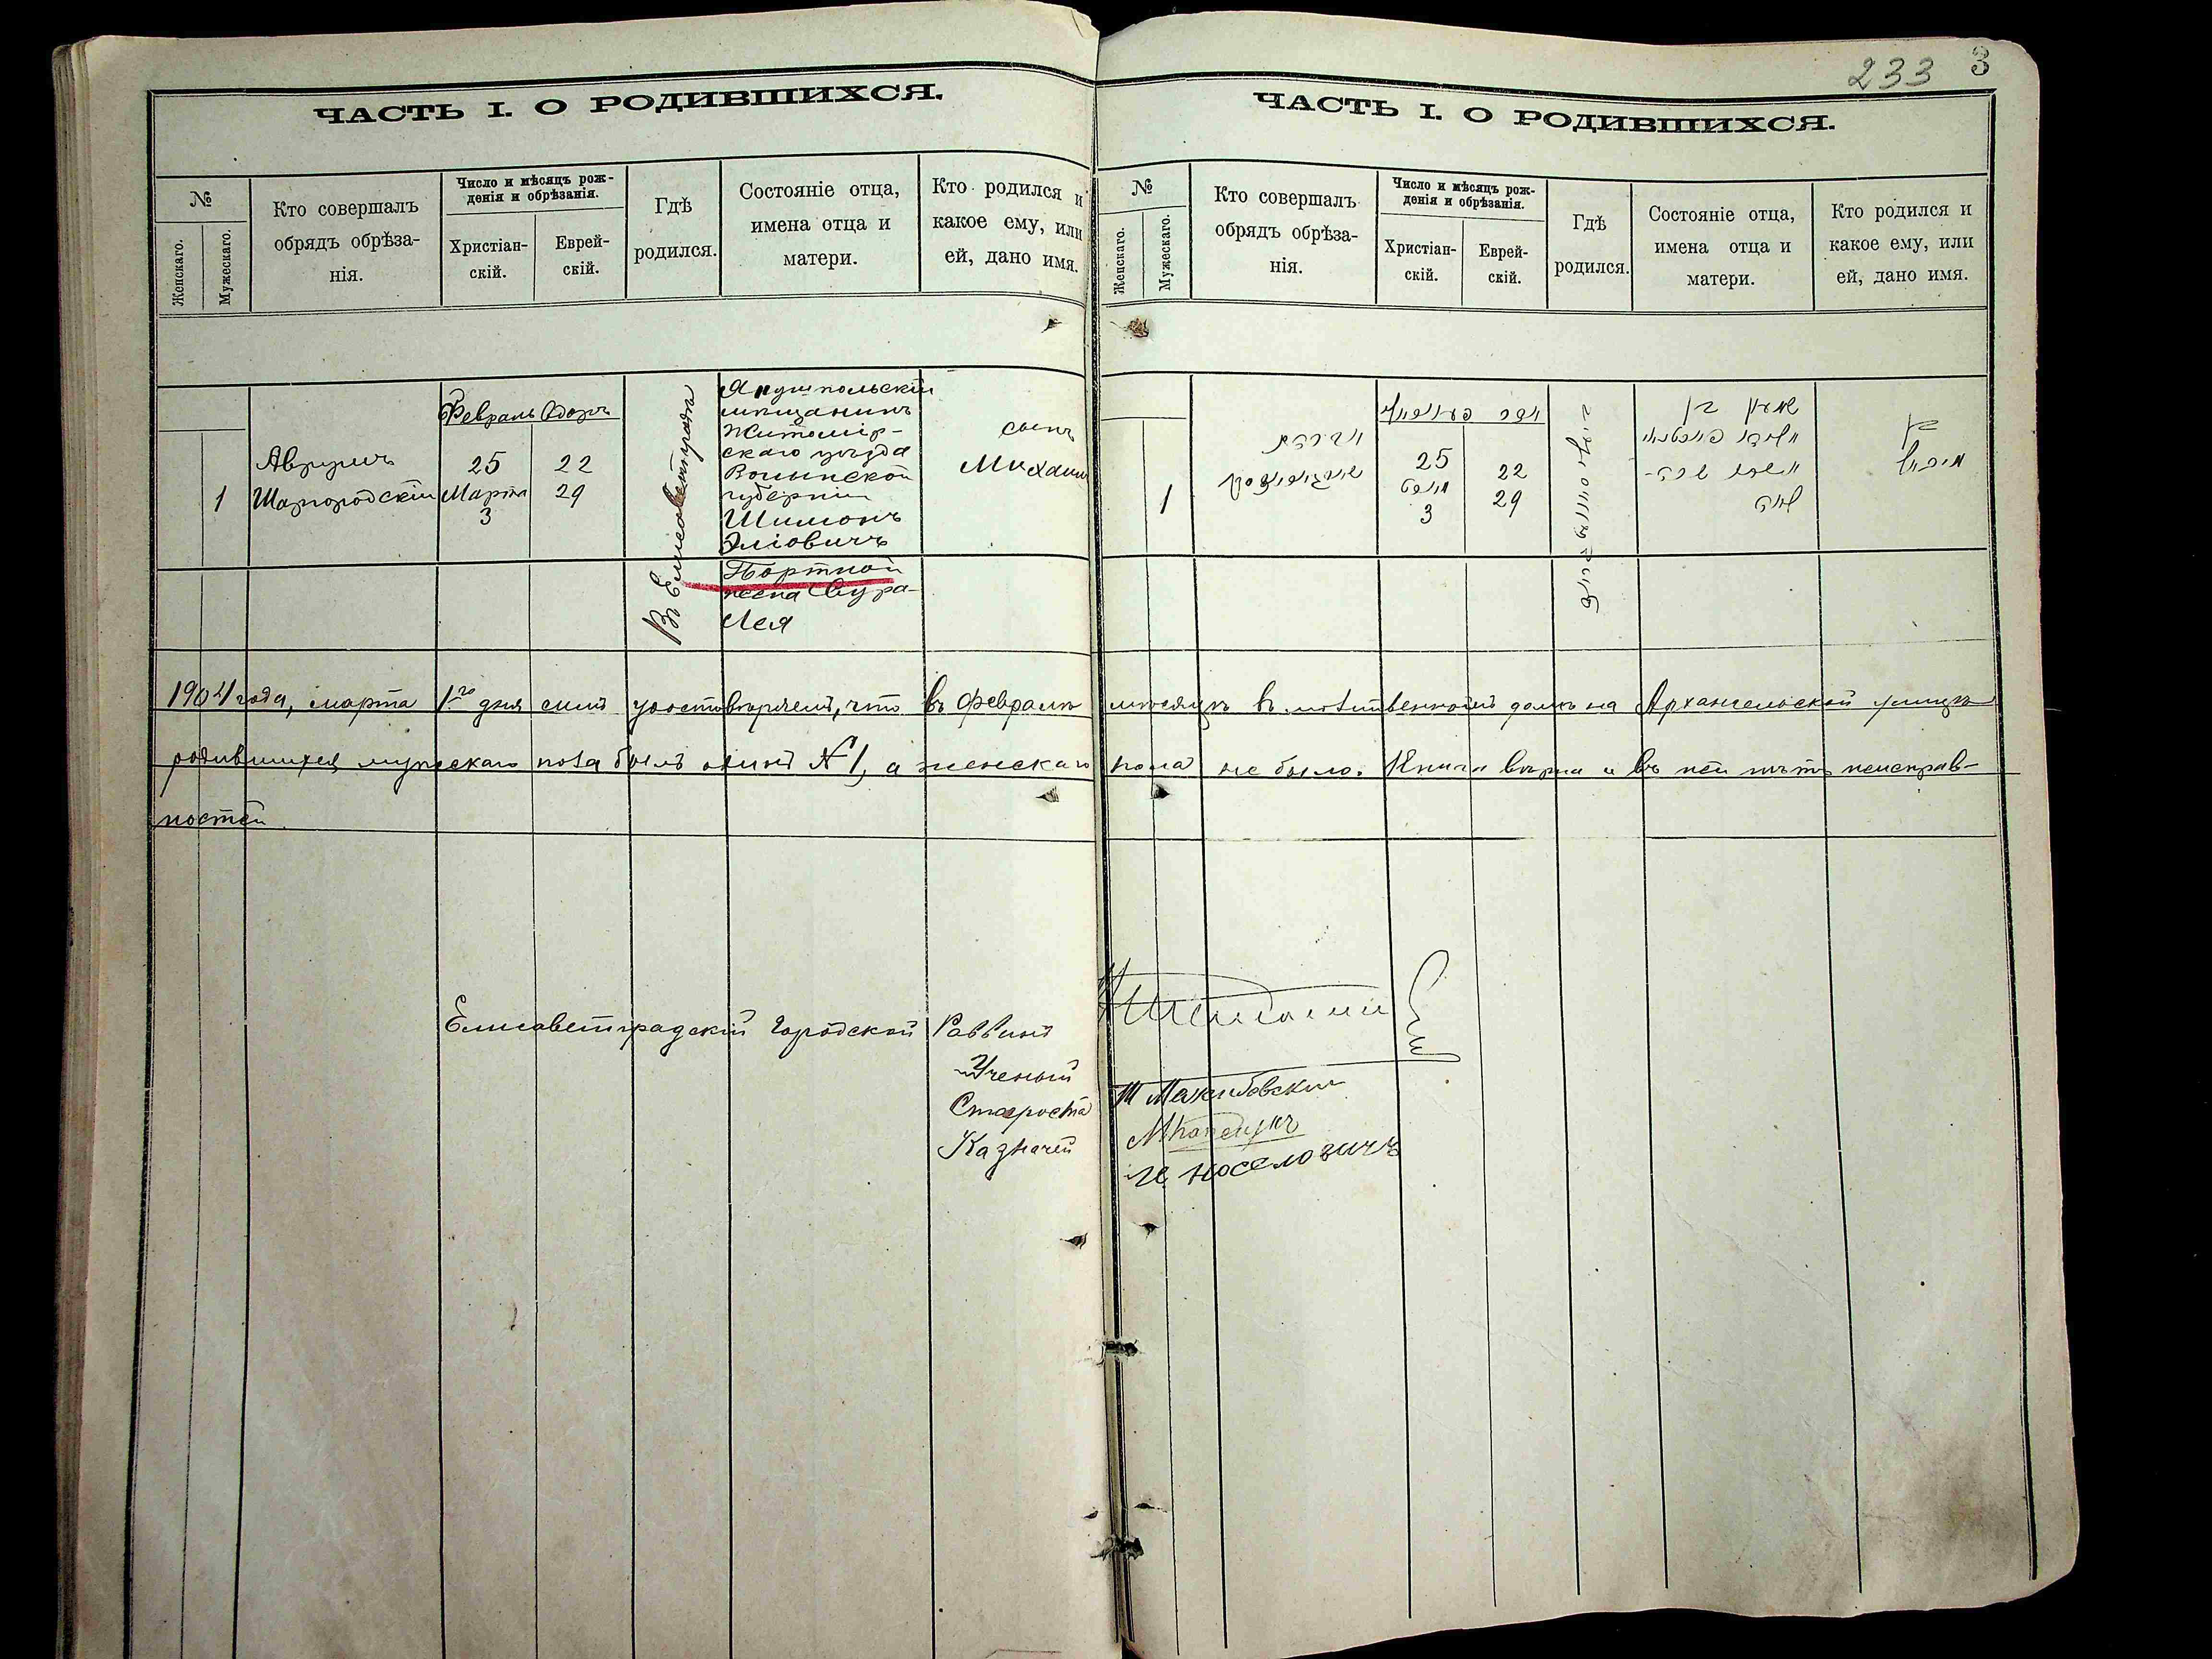 233 3
ЧАСТЬ I. О РОДИВШИХСЯ.
№
Женскаго.
Мужескаго.
Кто совершалъ
обрядъ обрѣза-
нія.
Число и мѣсяцъ рож-
денія и обрѣзанія.
Христіан-
скій.
Еврей-
скій.
Гдѣ
родился.
Состояніе отца,
имена отца и
матери.
Кто родился и
какое ему, или
ей, дано имя.
1
Аврумъ
Шаргородскій
Февраль Адаръ
25 22
Марта 29
3
Въ Елисаветградѣ
Янушпольскій
мѣщанинъ
Житомір-
скаго уѣзда
Волынской
губерніи
Шимонъ
Эліовичъ
Портной
жена Сура-
Лея
сынъ
Михаил
ЧАСТЬ I. О РОДИВШИХСЯ.
№
Женскаго.
Мужескаго.
Кто совершалъ
обрядъ обрѣза-
нія.
Число и мѣсяцъ рож-
денія и обрѣзанія.
Христіан-
скій.
Еврей-
скій.
Гдѣ
родился.
Состояніе отца,
имена отца и
матери.
Кто родился и
какое ему, или
ей, дано имя.
1
25 22
29
3
שמעון בן
לאה
בן
מיכאל
1904 года, марта 1го дня симъ удостовѣряемъ, что въ Февралѣ мѣсяцѣ въ молитвенномъ домѣ на Архангельской улицѣ
родившихся мужескаго пола былъ одинъ № 1, а женскаго пола не было. Книга вѣрна и въ ней нѣтъ неисправ-
ностей.
Елисаветградскій Городской Раввинъ
Ученый
Староста
Казначей И. Носеловичъ